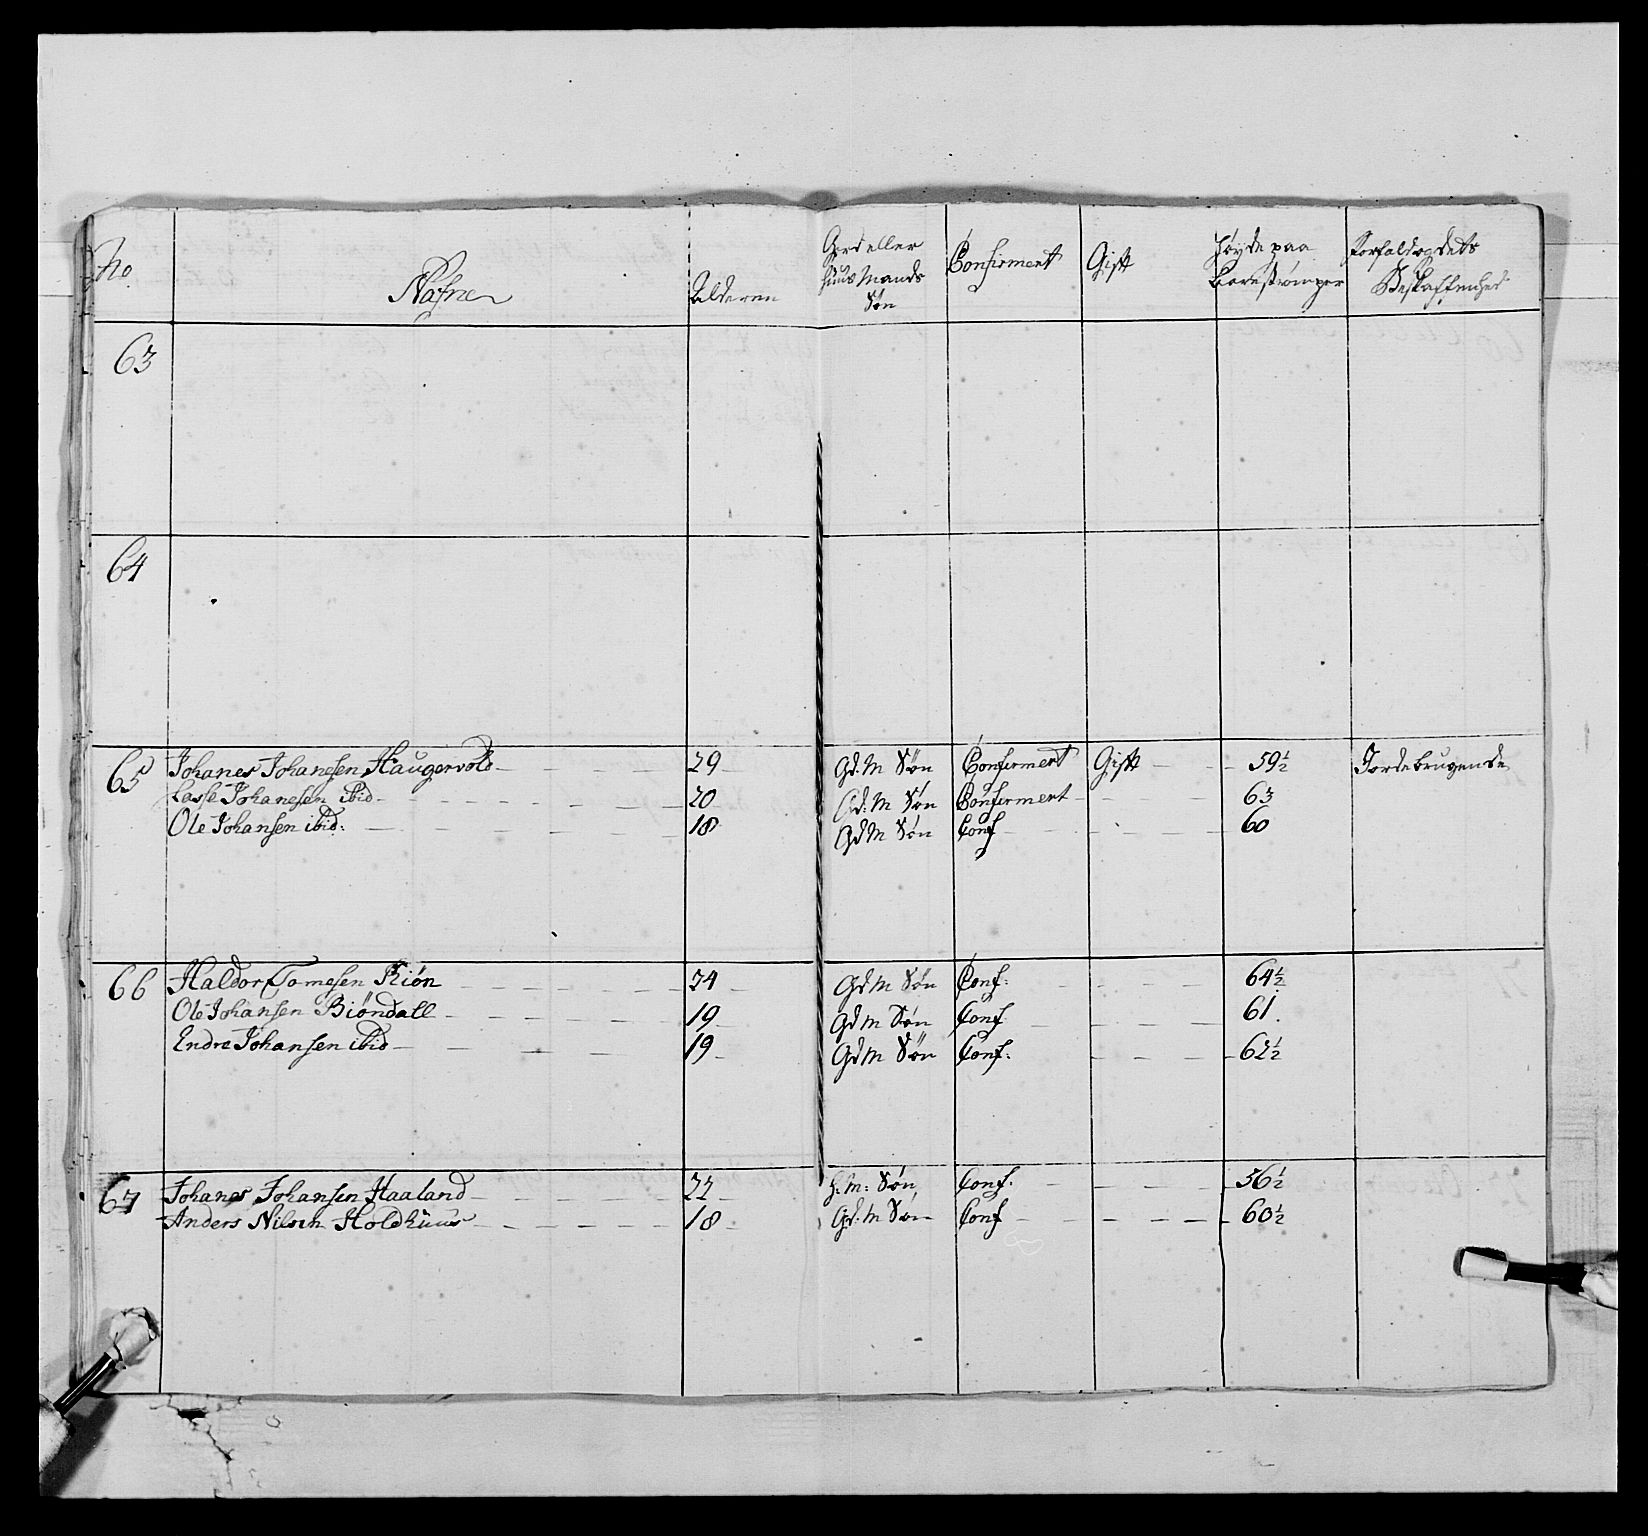 No. Nafne Alderen Gord eller Huus Mands Søn Confirmert Gift Høyde paa Barestrømper Forfald og dets Beskaffenhed
63
64
65 Johanes Johanesen Haugervold 29 Gd. M Søn Confirmert Gift 59½ Jordebrugende
Lasse Johanesen ibid 20 Gd: M Søn Confirmert 63
Ole Johansen ibid: 18 Gd M Søn Conf 60
66 Haldor Tomesen Riøn 24 Gd M Søn Conf: 64½
Ole Johansen Biøndall 19 Gd M Søn Conf 61.
Endre Johansen ibid 19 Gd M Søn Conf: 62½
67 Johanes Johansen Haaland 22 H: M: Søn Conf. 56½
Anders Nilsen Holdhuus 18 Gd. M Søn Conf 60½